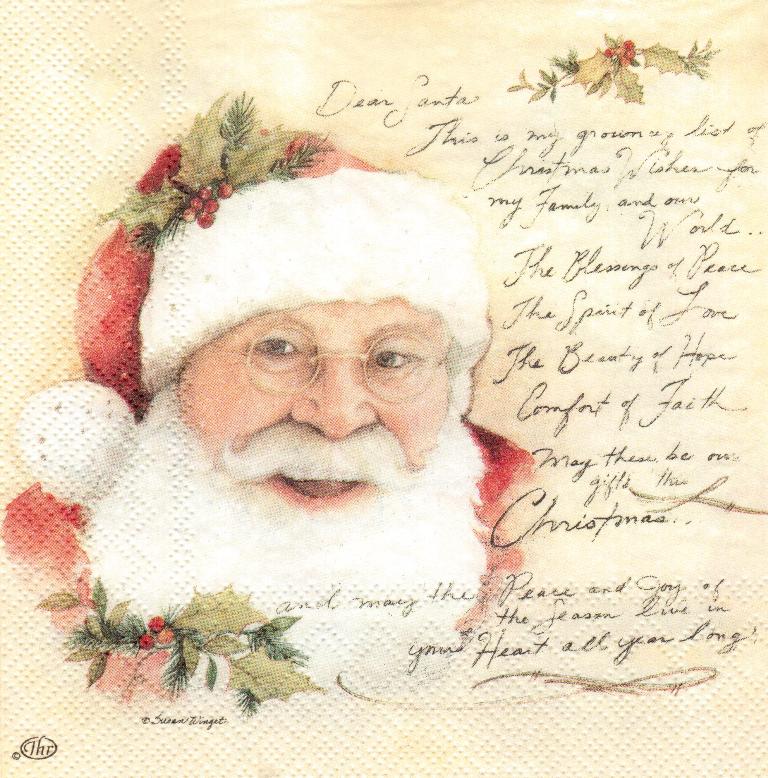 Dear Santa
This is my growing list of
Christmas Wishes for
my Family and our
World..
The Blessings of Peace
The Spirit of Love
The Beauty of Hope
Comfort of Faith
May these be our
gifts this
Christmas..
and may the Peace and Joy of
the Season live in
your Heart all year long!
© Susan Winget
© Ihr